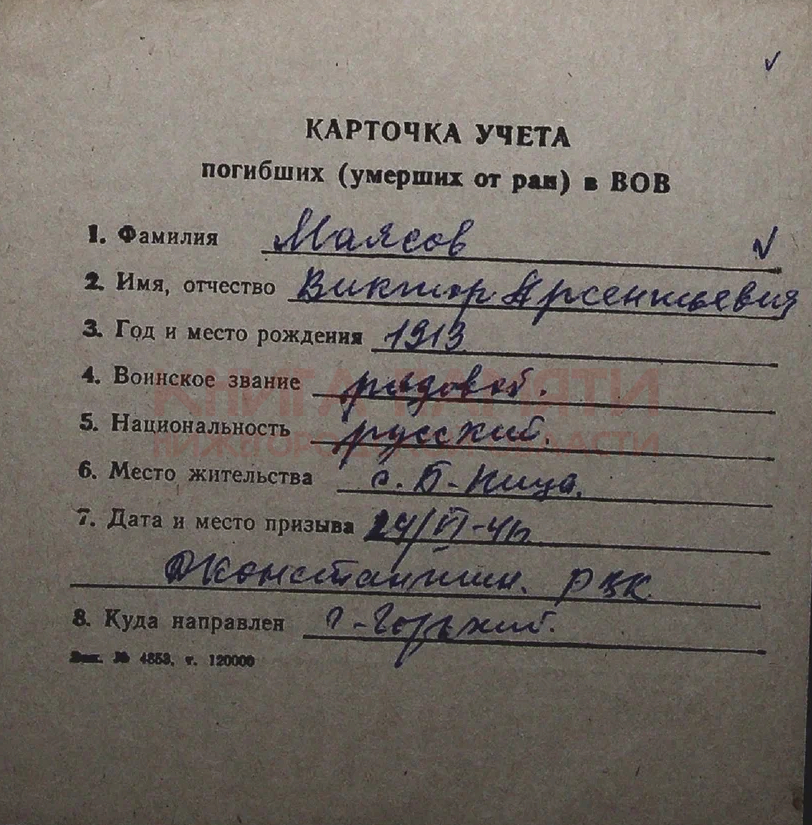 КАРТОЧКА УЧЕТА
погибших (умерших от ран) в ВОВ
1. Фамилия Маясов
2. Имя, отчество Виктор Арсентьевич
3. Год и место рождения 1913
4. Воинское звание рядовой.
5. Национальность русский.
КНИГА ПАМЯТИ
НИЖЕГОРОДСКОЙ ОБЛАСТИ
6. Место жительства
7. Дата и место призыва 24/VI-41
РВК
8. Куда направлен г-Горький.
Зак. № 4853, т. 120000